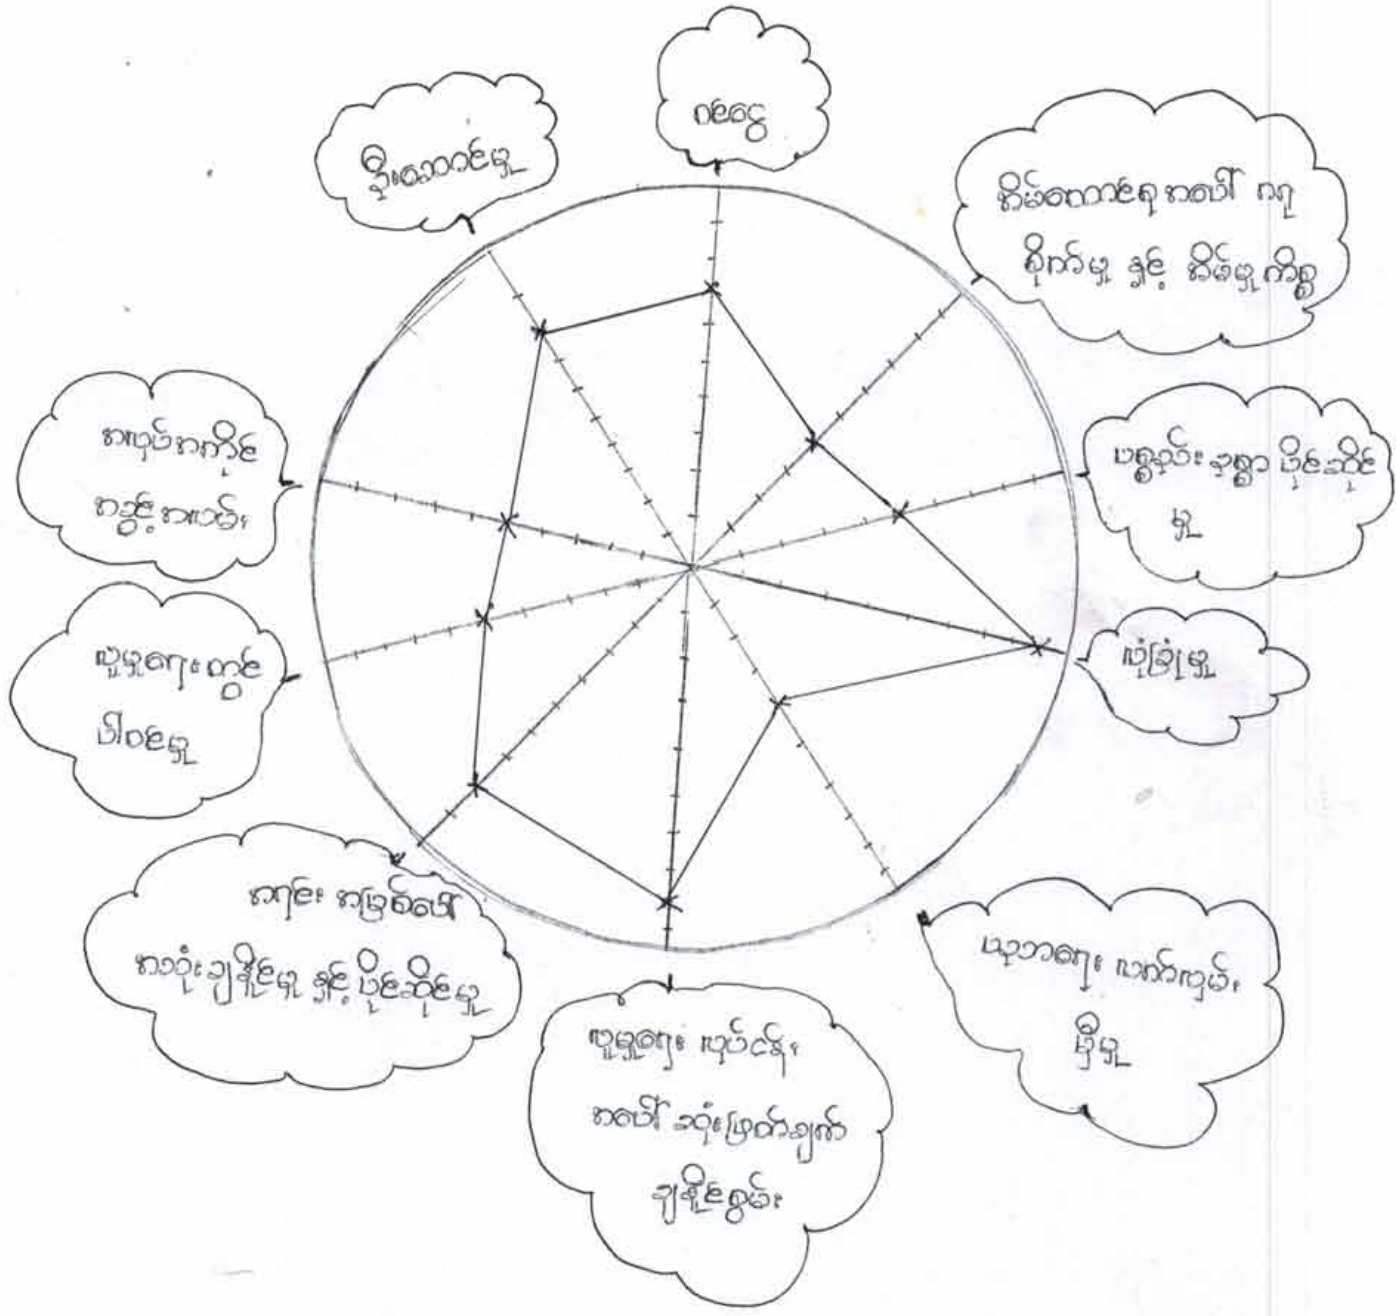 ဝင်ငွေ
အိမ်ထောင်ရှုအပေါ် ဂရု
စိုက်မှု နှင့် အိမ်မှုကိစ္စ
ပစ္စည်း ဥစ္စာ ပိုင်ဆိုင်
မှု
လုံခြုံမှု
ယုဘရေး လက်လှမ်း
မှီမှု
လူမှုရေး လုပ်ငန်း
အပေါ် ဆုံးဖြတ်ချက်
ချနိုင်စွမ်း
အရင်း အမြစ်ပေါ်
အသုံးချနိုင်မှု နှင့် ပိုင်ဆိုင်မှု
လူမှုရေးတွင်
ပါဝင်မှု
အလုပ်အကိုင်
အခွင့်အလမ်း
ဦးဆောင်မှု